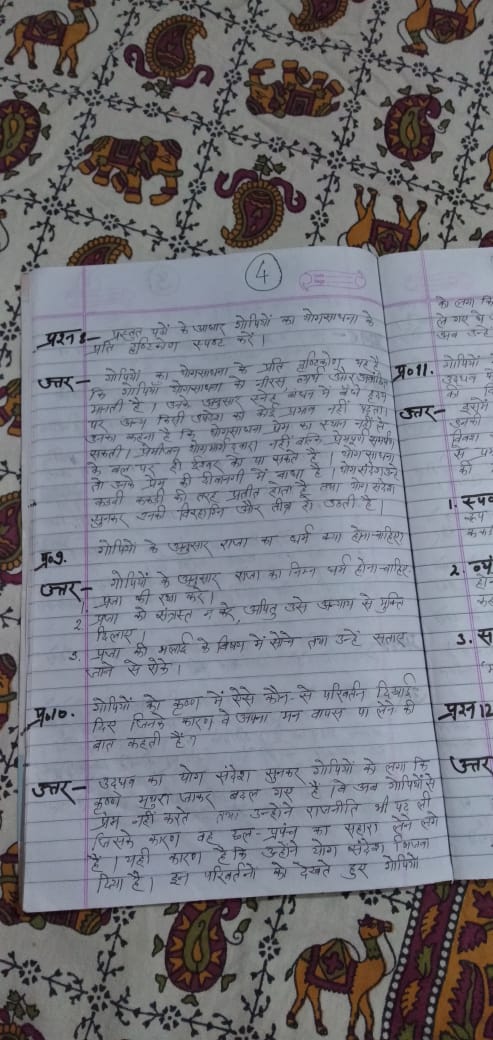 4
Date
Page
प्रश्न 8- प्रस्तुत पदों के आधार गोपियों का योगसाधना के
प्रति दृष्टिकोण स्पष्ट करें ।
उत्तर- गोपियों का योगसाधना के प्रति दृष्टिकोण यह है
कि गोपियाँ योगसाधना को नीरस व्यर्थ और अवांछित
मानती हैं । उनके अनुसार स्नेह बंधन में बंधे हृदय
पर अन्य किसी उपदेश का कोई प्रभाव नहीं पड़ता।
उनका कहना है कि योगसाधना प्रेम का स्थान नहीं ले
सकती। प्रेमीजन योगमार्ग द्वारा नहीं बल्कि प्रेमपूर्ण समर्पण
के बल पर ही ईश्वर को पा सकते हैं । योगसाधना
तो उनके प्रेम की दीवानगी में बाधा है । योग संदेश उन्हें
कड़वी ककड़ी की तरह प्रतीत होता है तथा योग संदेश
सुनकर उनकी विरहाग्नि और तीव्र हो उठती है।
प्र०9. गोपियों के अनुसार राजा का धर्म क्या होना चाहिए?
उत्तर- गोपियों के अनुसार राजा का निम्न धर्म होना चाहिए-
1. प्रजा की रक्षा करे।
2. प्रजा को संत्रस्त न करे, अपितु उसे अन्याय से मुक्ति
दिलाए।
3. प्रजा की भलाई के विषय में सोचे तथा उन्हें सताए
जाने से रोके ।
प्र०10. गोपियों को कृष्ण में ऐसे कौन-से परिवर्तन दिखाई
दिए जिनके कारण वे अपना मन वापस पा लेने की
बात कहती हैं?
उत्तर- उद्धव का योग संदेश सुनकर गोपियों को लगा कि
कृष्ण मथुरा जाकर बदल गए हैं वे अब गोपियों से
प्रेम नहीं करते तथा उन्होंने राजनीति भी पढ़ ली
जिसके कारण वह छल-प्रपंच का सहारा लेने लगे
हैं । यही कारण है कि उन्होंने योग संदेश भिजवा
दिया है। इन परिवर्तनों को देखते हुए गोपियों
को लगा कि
ले गए थे
अब उन्हें
प्र०11. गोपियों
उद्धव के
उत्तर-
उनकी
से
1. स्पष्
2.
3.
प्रश्न 12
उत्तर